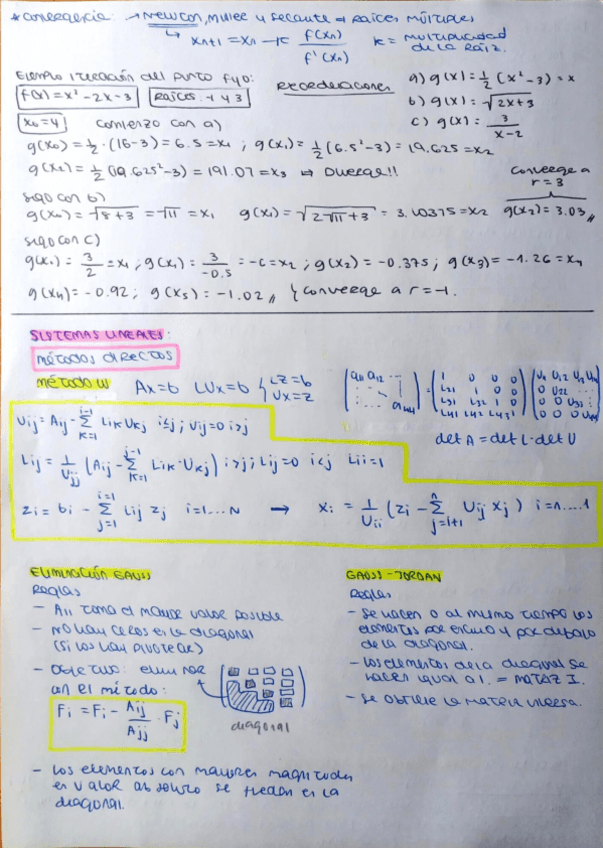 * Convergencia: → Newton, Muller y Secante ⇒ Raíces múltiples
↳ xn+1 = xn − k f(xn)/f'(xn) k = multiplicidad de la raíz.
Ejemplo iteración del punto fijo:
f(x) = x² − 2x − 3 Raíces −1 y 3 Reordenaciones
a) g(x) = 1/2 (x² − 3) = x
b) g(x) = √(2x+3)
c) g(x) = 3/(x−2)
x0 = 4 comienzo con a)
g(x0) = 1/2 · (16−3) = 6.5 = x1 ; g(x1) = 1/2 (6.5² − 3) = 19.625 = x2
g(x2) = 1/2 (19.625² − 3) = 191.07 = x3 ⇒ Diverge!!
sigo con b)
g(x0) = √(8+3) = √11 = x1 g(x1) = √(2√11 + 3) = 3.10375 = x2 g(x2) = 3.03 //
converge a r = 3
sigo con c)
g(x0) = 3/2 = x1 ; g(x1) = 3/−0.5 = −6 = x2 ; g(x2) = −0.375 ; g(x3) = −1.26 = x4
g(x4) = −0.92 ; g(x5) = −1.02 // } converge a r = −1.
SISTEMAS LINEALES:
MÉTODOS DIRECTOS
MÉTODO LU Ax = b LUx = b { LZ = b
Ux = z
det A = det L · det U
Uij = Aij − Σ(k=1, i−1) Lik Ukj i ≤ j ; Uij = 0 i > j
Lij = 1/Ujj (Aij − Σ(k=1, j−1) Lik · Ukj) i > j ; Lij = 0 i < j Lii = 1
zi = bi − Σ(j=1, i=1) Lij zj i = 1....N → xi = 1/Uii (zi − Σ(j=i+1, n) Uij xj) i = n....1
ELIMINACIÓN GAUSS
Reglas
− A11 toma el mayor valor posible
− No hay ceros en la diagonal
(si los hay pivotear)
− Objetivo: eliminar
con el método:
Fi = Fi − Aij/Ajj · Fj
diagonal
− Los elementos con mayores magnitudes
en valor absoluto se quedan en la
diagonal.
GAUSS − JORDAN
Reglas
− Se hacen 0 al mismo tiempo los
elementos por encima y por debajo
de la diagonal.
− Los elementos de la diagonal se
hacen igual a 1. = MATRIZ I.
− Se obtiene la matriz inversa.